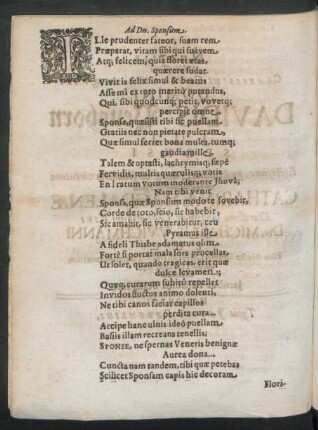 Ad Dn. Sponsum.
ILle prudenter fateor, suam rem
Præparat, vitam sibi qui suavem
Atq; felicem, quia floret ætas,
quærere sudat.
Vivit is felix simul & beatus
Asse mî ex toto meritò putandus,
Qui, sibi quodcunq; petit, voveтq;
percipit omne.
Sponse, quæsisti tibi sic puellam
Gratiis nec non pietate pulcram,
Quæ simul ferret bona multa, tumq;
gaudia mille.
Talem & optasti, lachrymisq; sæpè
Fervidis, multis querulisq; votis
En! ratum votum moderante Jhova;
Nam tibi venit
Sponsa, quæ Sponsum modò te fovebit,
Corde de toto, scio, sic habebit,
Sic amabit, sic venerabitur, ceu
Pyramus ille
A fideli Thisbe adamatus olim.
Fortè si portat mala sors procellas,
Ut solet, quando tragicas, erit quæ
dulce levamen;
Quæq; curarum subitò repellet
Invidos fluctus animo dolenti,
Ne tibi canos faciat capillos
perdita cura.
Accipe hanc ulnis ideò puellam
Basiis illam recreans tenellis:
SPONSE, ne spernas Veneris benignæ
Aurea dona.
Cuncta nam tandem, tibi quæ petebas
Scilicet Sponsam capis hic decoram
Flori-